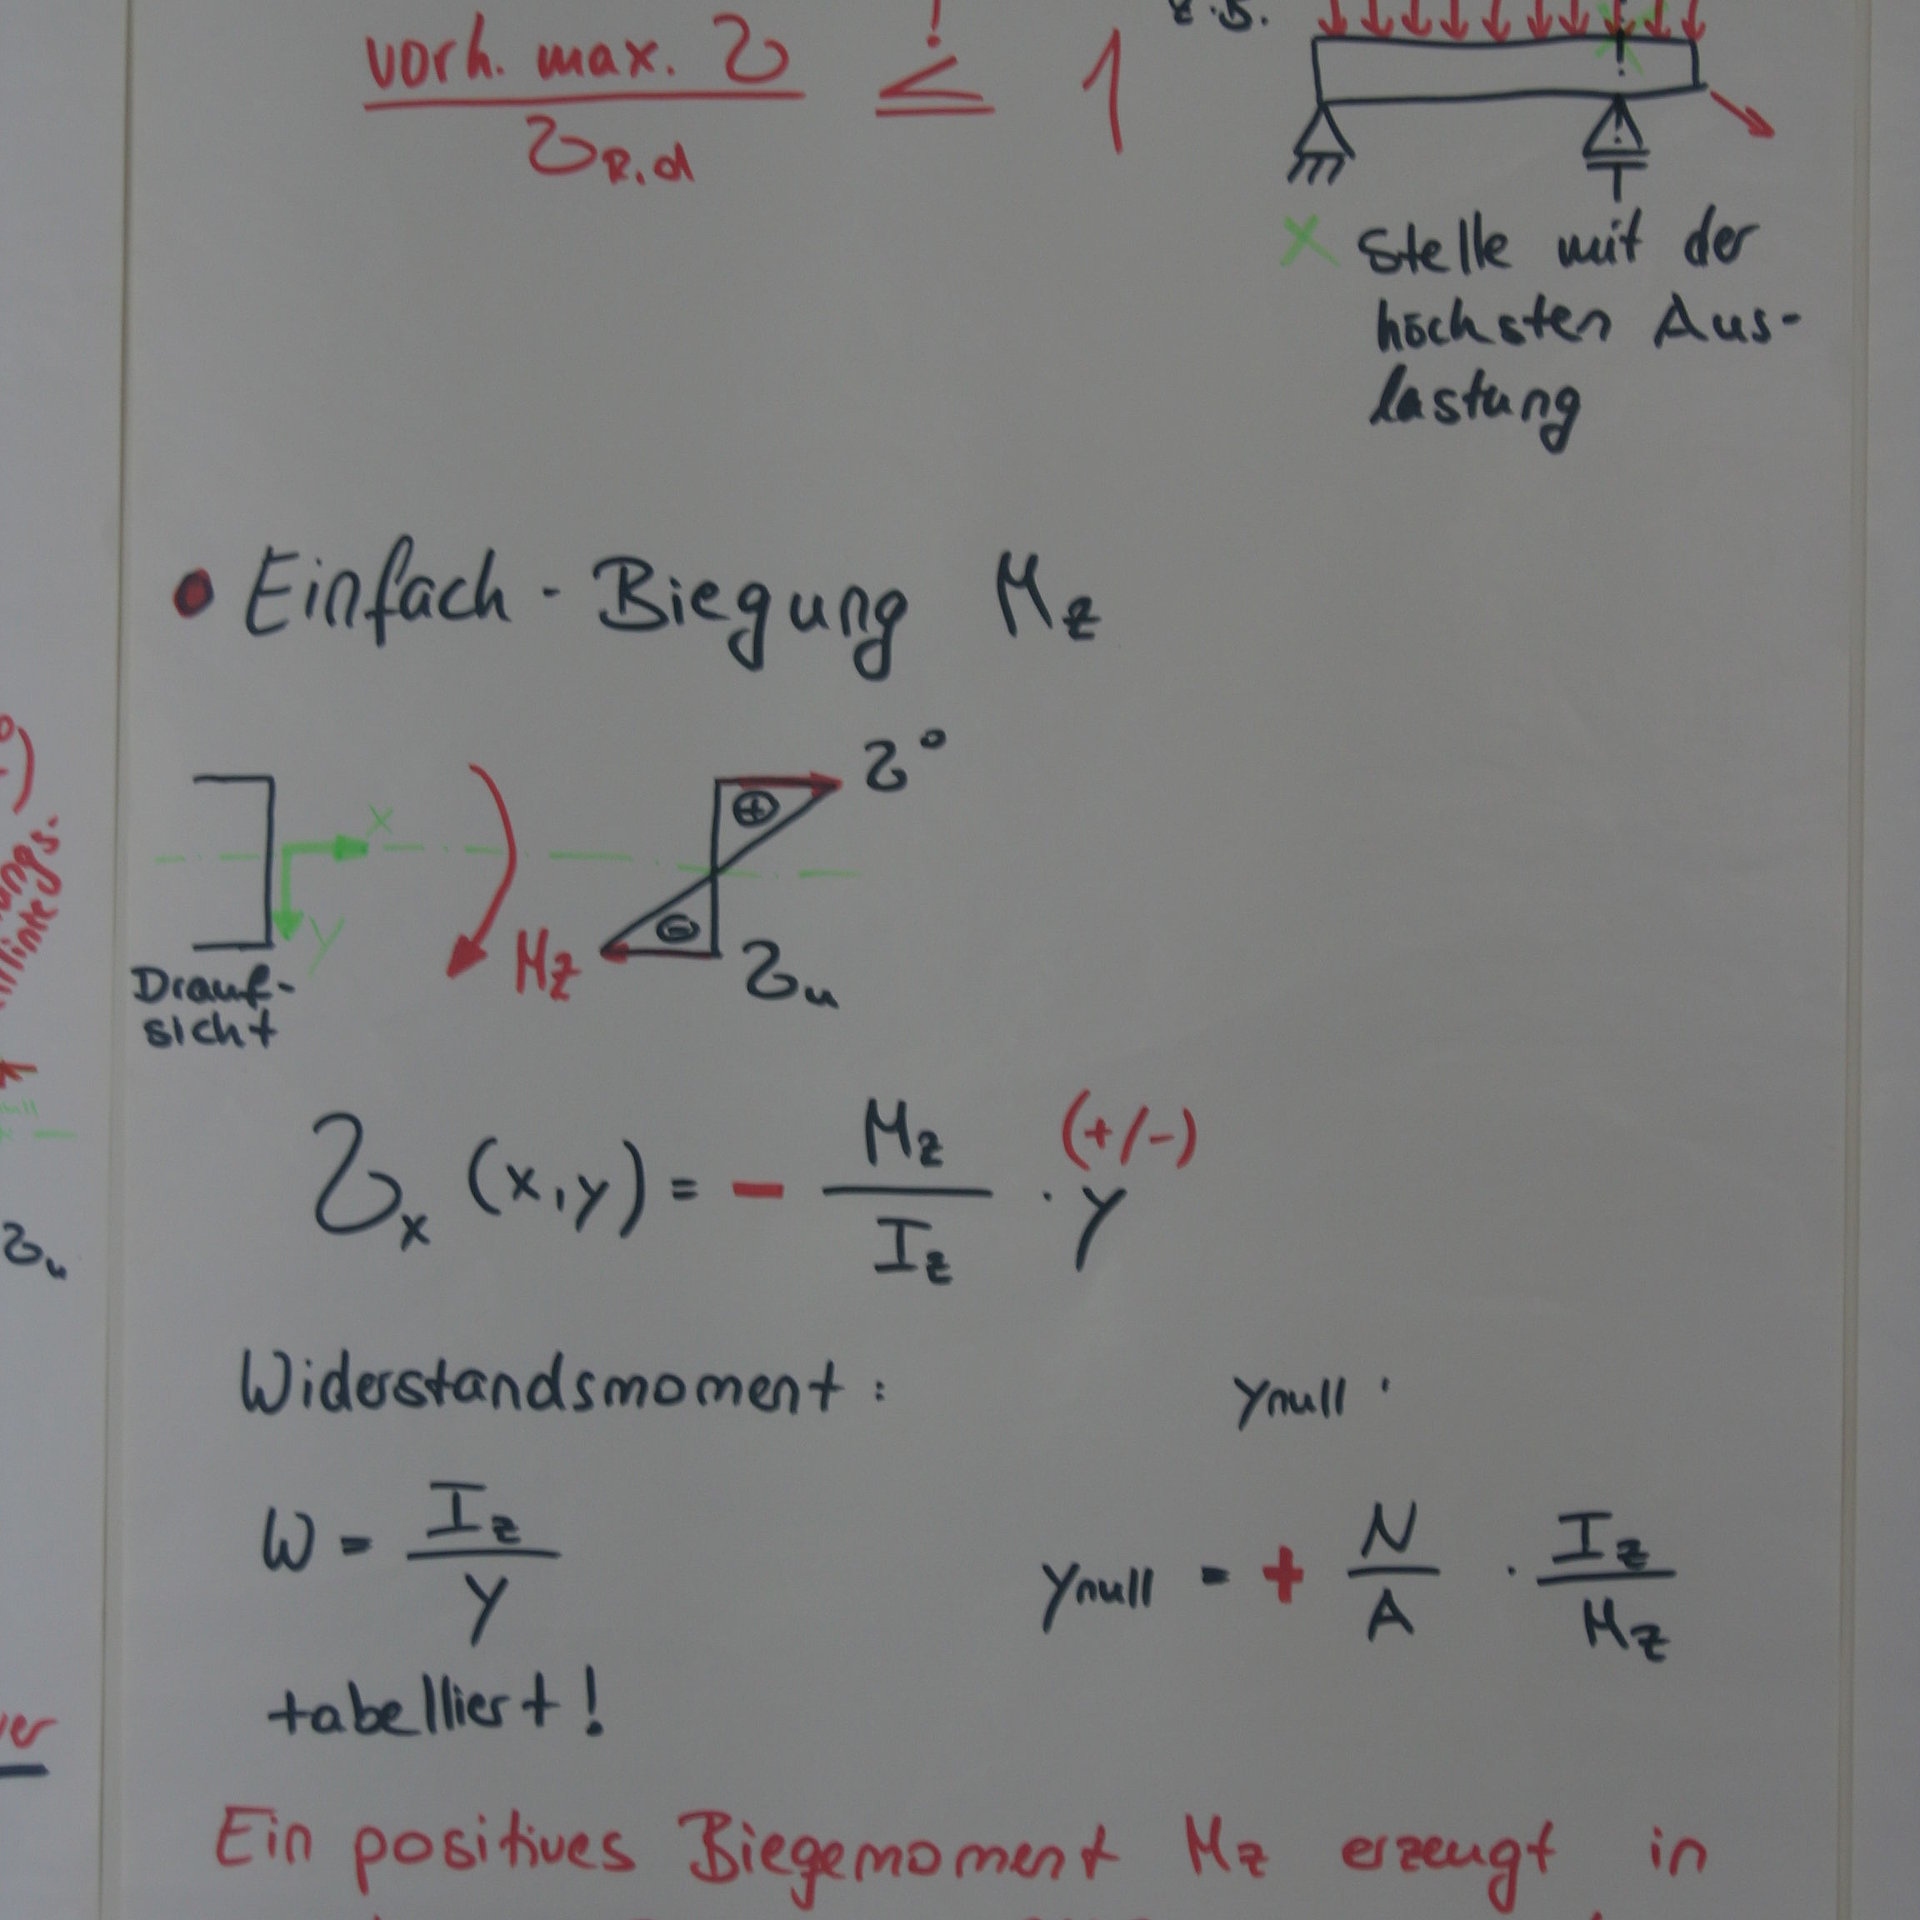 vorh. max. σ
σR,d
! ≤ 1
z.B.
x Stelle mit der
höchsten Aus-
lastung
• Einfach - Biegung Mz
σ°
⊕
x
y
Mz
⊖
σu
Drauf-
sicht
σx (x,y) = - Mz / Iz · y (+/-)
σu
Widerstandsmoment :
ynull :
W = Iz / y
ynull = + N / A · Iz / Mz
tabelliert !
Ein positives Biegemoment Mz erzeugt in